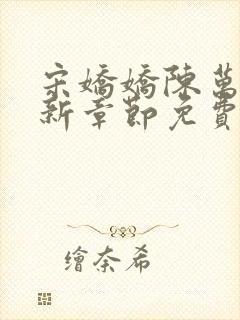 宋嬌嬌陳萬
新章節免費
繪奈希